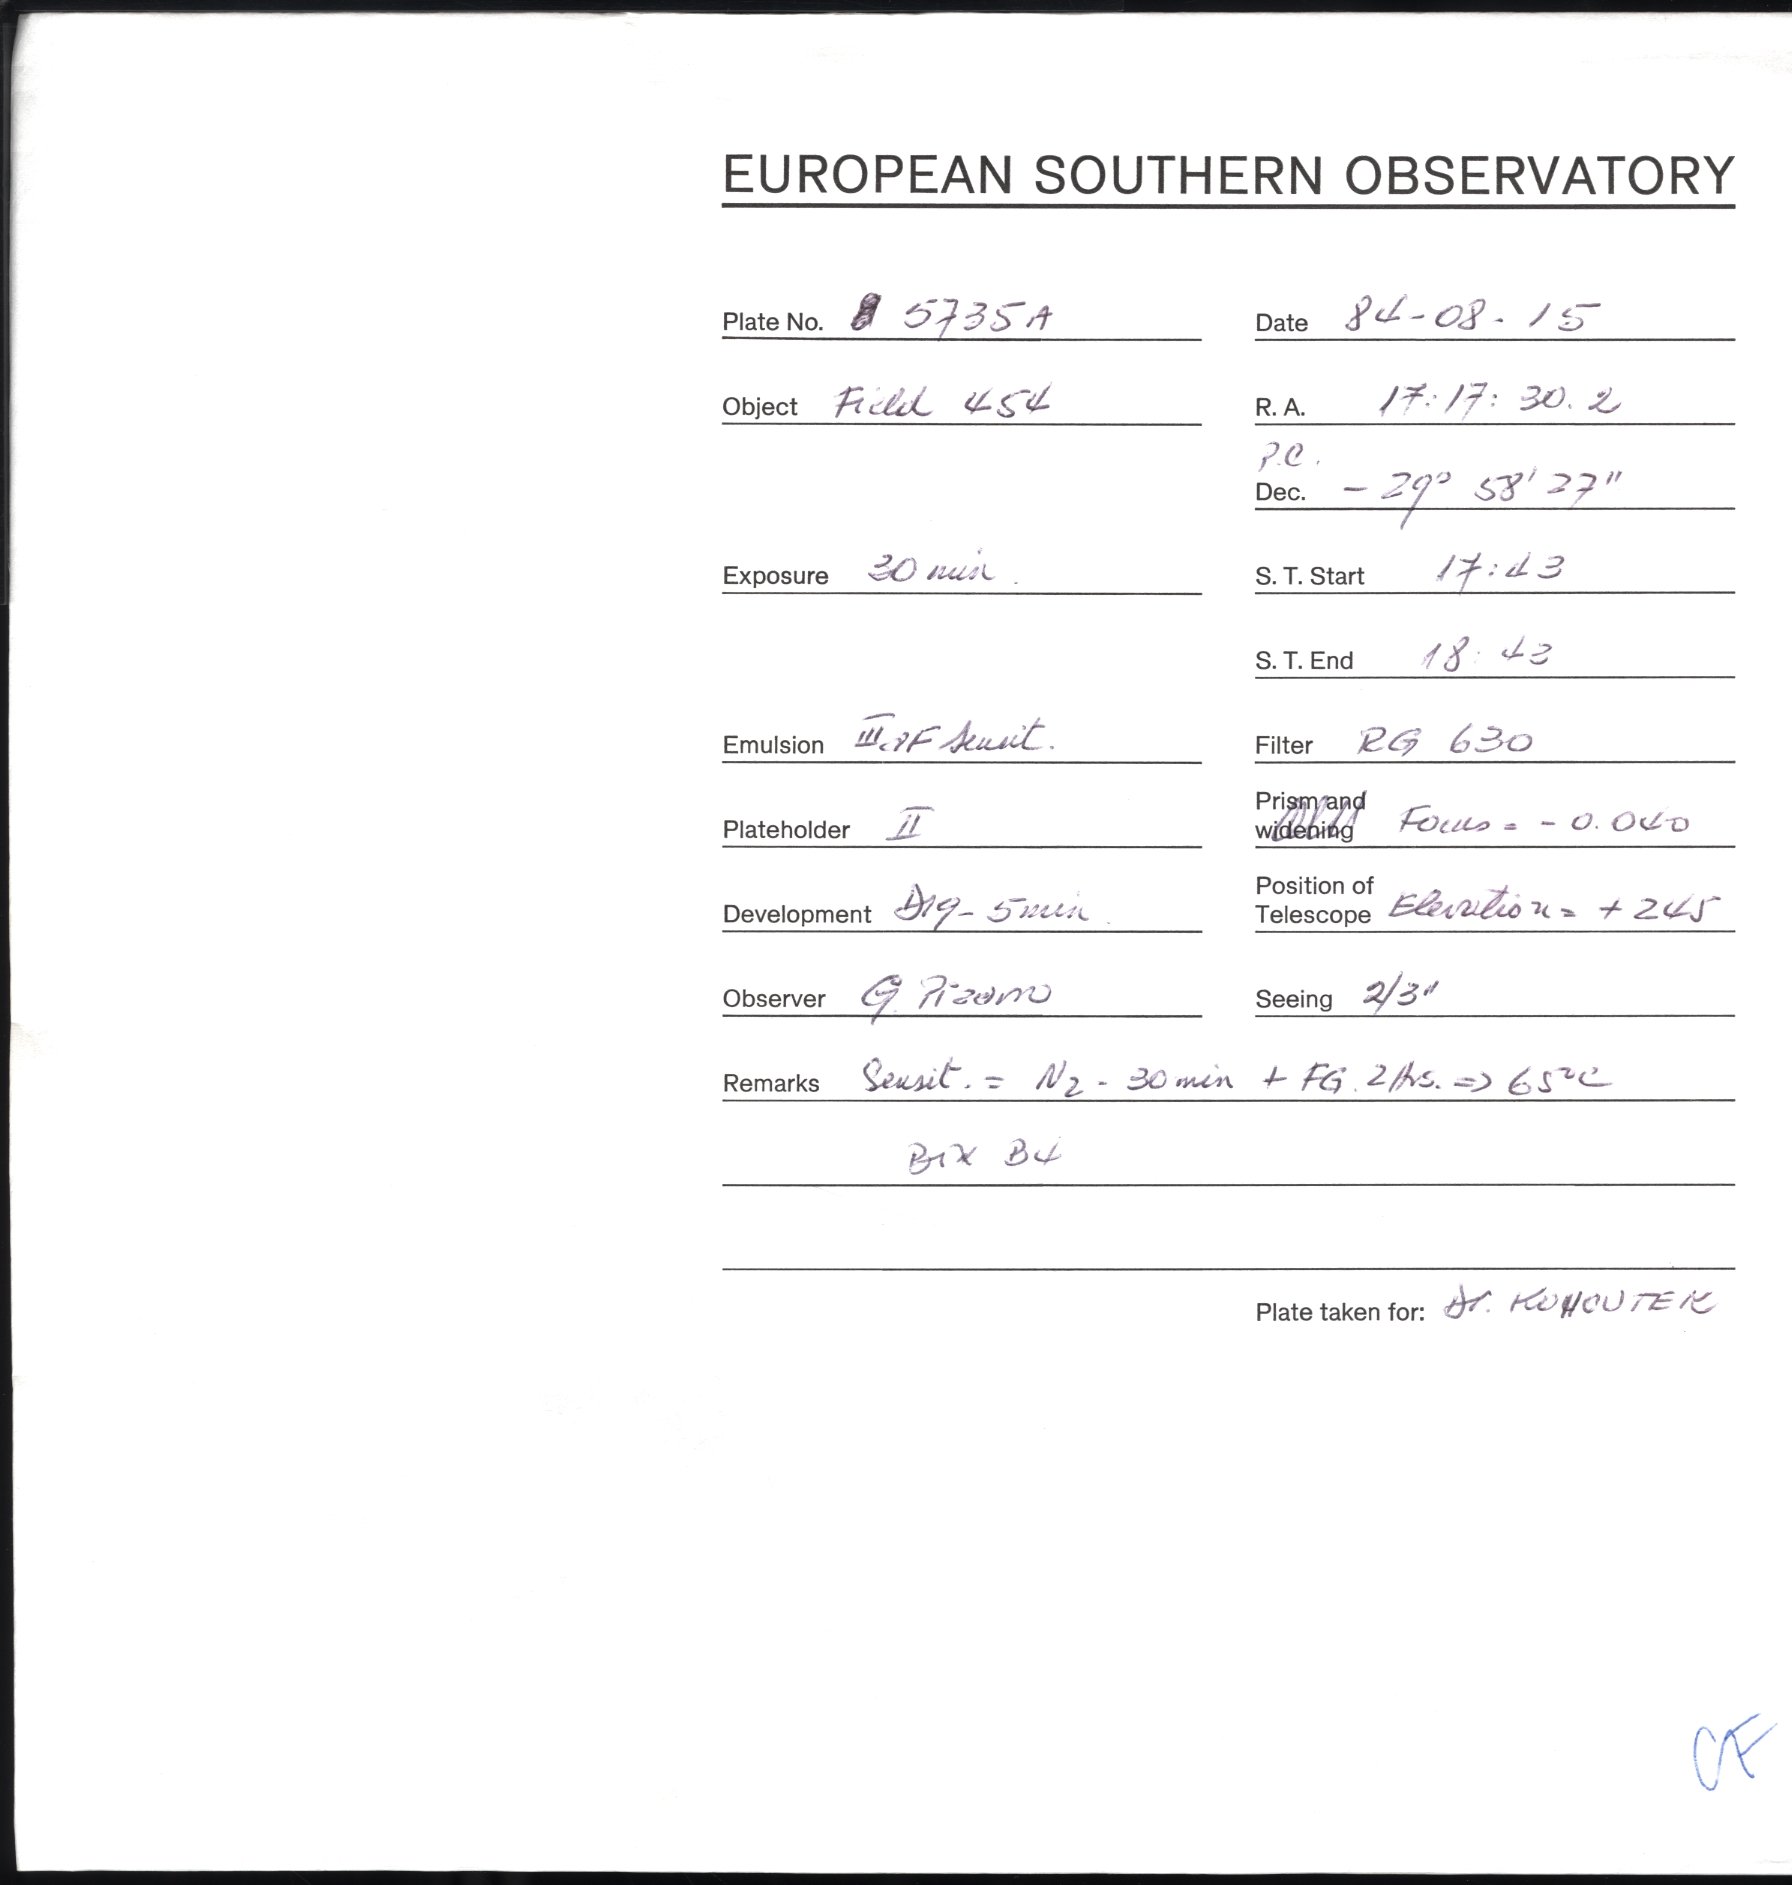 EUROPEAN SOUTHERN OBSERVATORY
Plate No. 5735A Date 84-08-15
Object Field 454 R. A. 17:17:30.2
P.C.
Dec. - 29° 58' 27"
Exposure 30 min. S. T. Start 17:43
S. T. End 18:43
Emulsion IIIaF Sensit. Filter RG 630
Plateholder II Prism and widening Focus = - 0.040
Development D19 - 5 min. Position of Telescope Elevation = + 245
Observer G Pizarro Seeing 2/3"
Remarks Sensit. = N2 - 30 min + FG. 2 hrs. => 65°C
Box B4
Plate taken for: Dr. KOHOUTEK